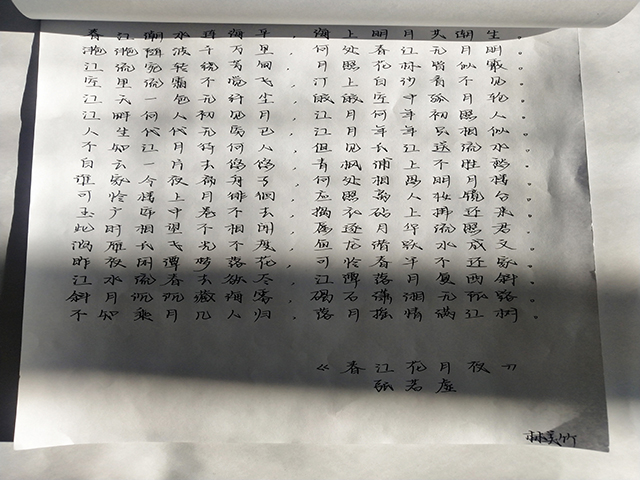 春江潮水连海平，海上明月共潮生。
滟滟随波千万里，何处春江无月明。
江流宛转绕芳甸，月照花林皆似霰。
空里流霜不觉飞，汀上白沙看不见。
江天一色无纤尘，皎皎空中孤月轮。
江畔何人初见月，江月何年初照人。
人生代代无穷已，江月年年只相似。
不知江月待何人，但见长江送流水。
白云一片去悠悠，青枫浦上不胜愁。
谁家今夜扁舟子，何处相思明月楼。
可怜楼上月徘徊，应照离人妆镜台。
玉户帘中卷不去，捣衣砧上拂还来。
此时相望不相闻，愿逐月华流照君。
鸿雁长飞光不度，鱼龙潜跃水成文。
昨夜闲潭梦落花，可怜春半不还家。
江水流春去欲尽，江潭落月复西斜。
斜月沉沉藏海雾，碣石潇湘无限路。
不知乘月几人归，落月摇情满江树。
《春江花月夜》
张若虚
林美竹